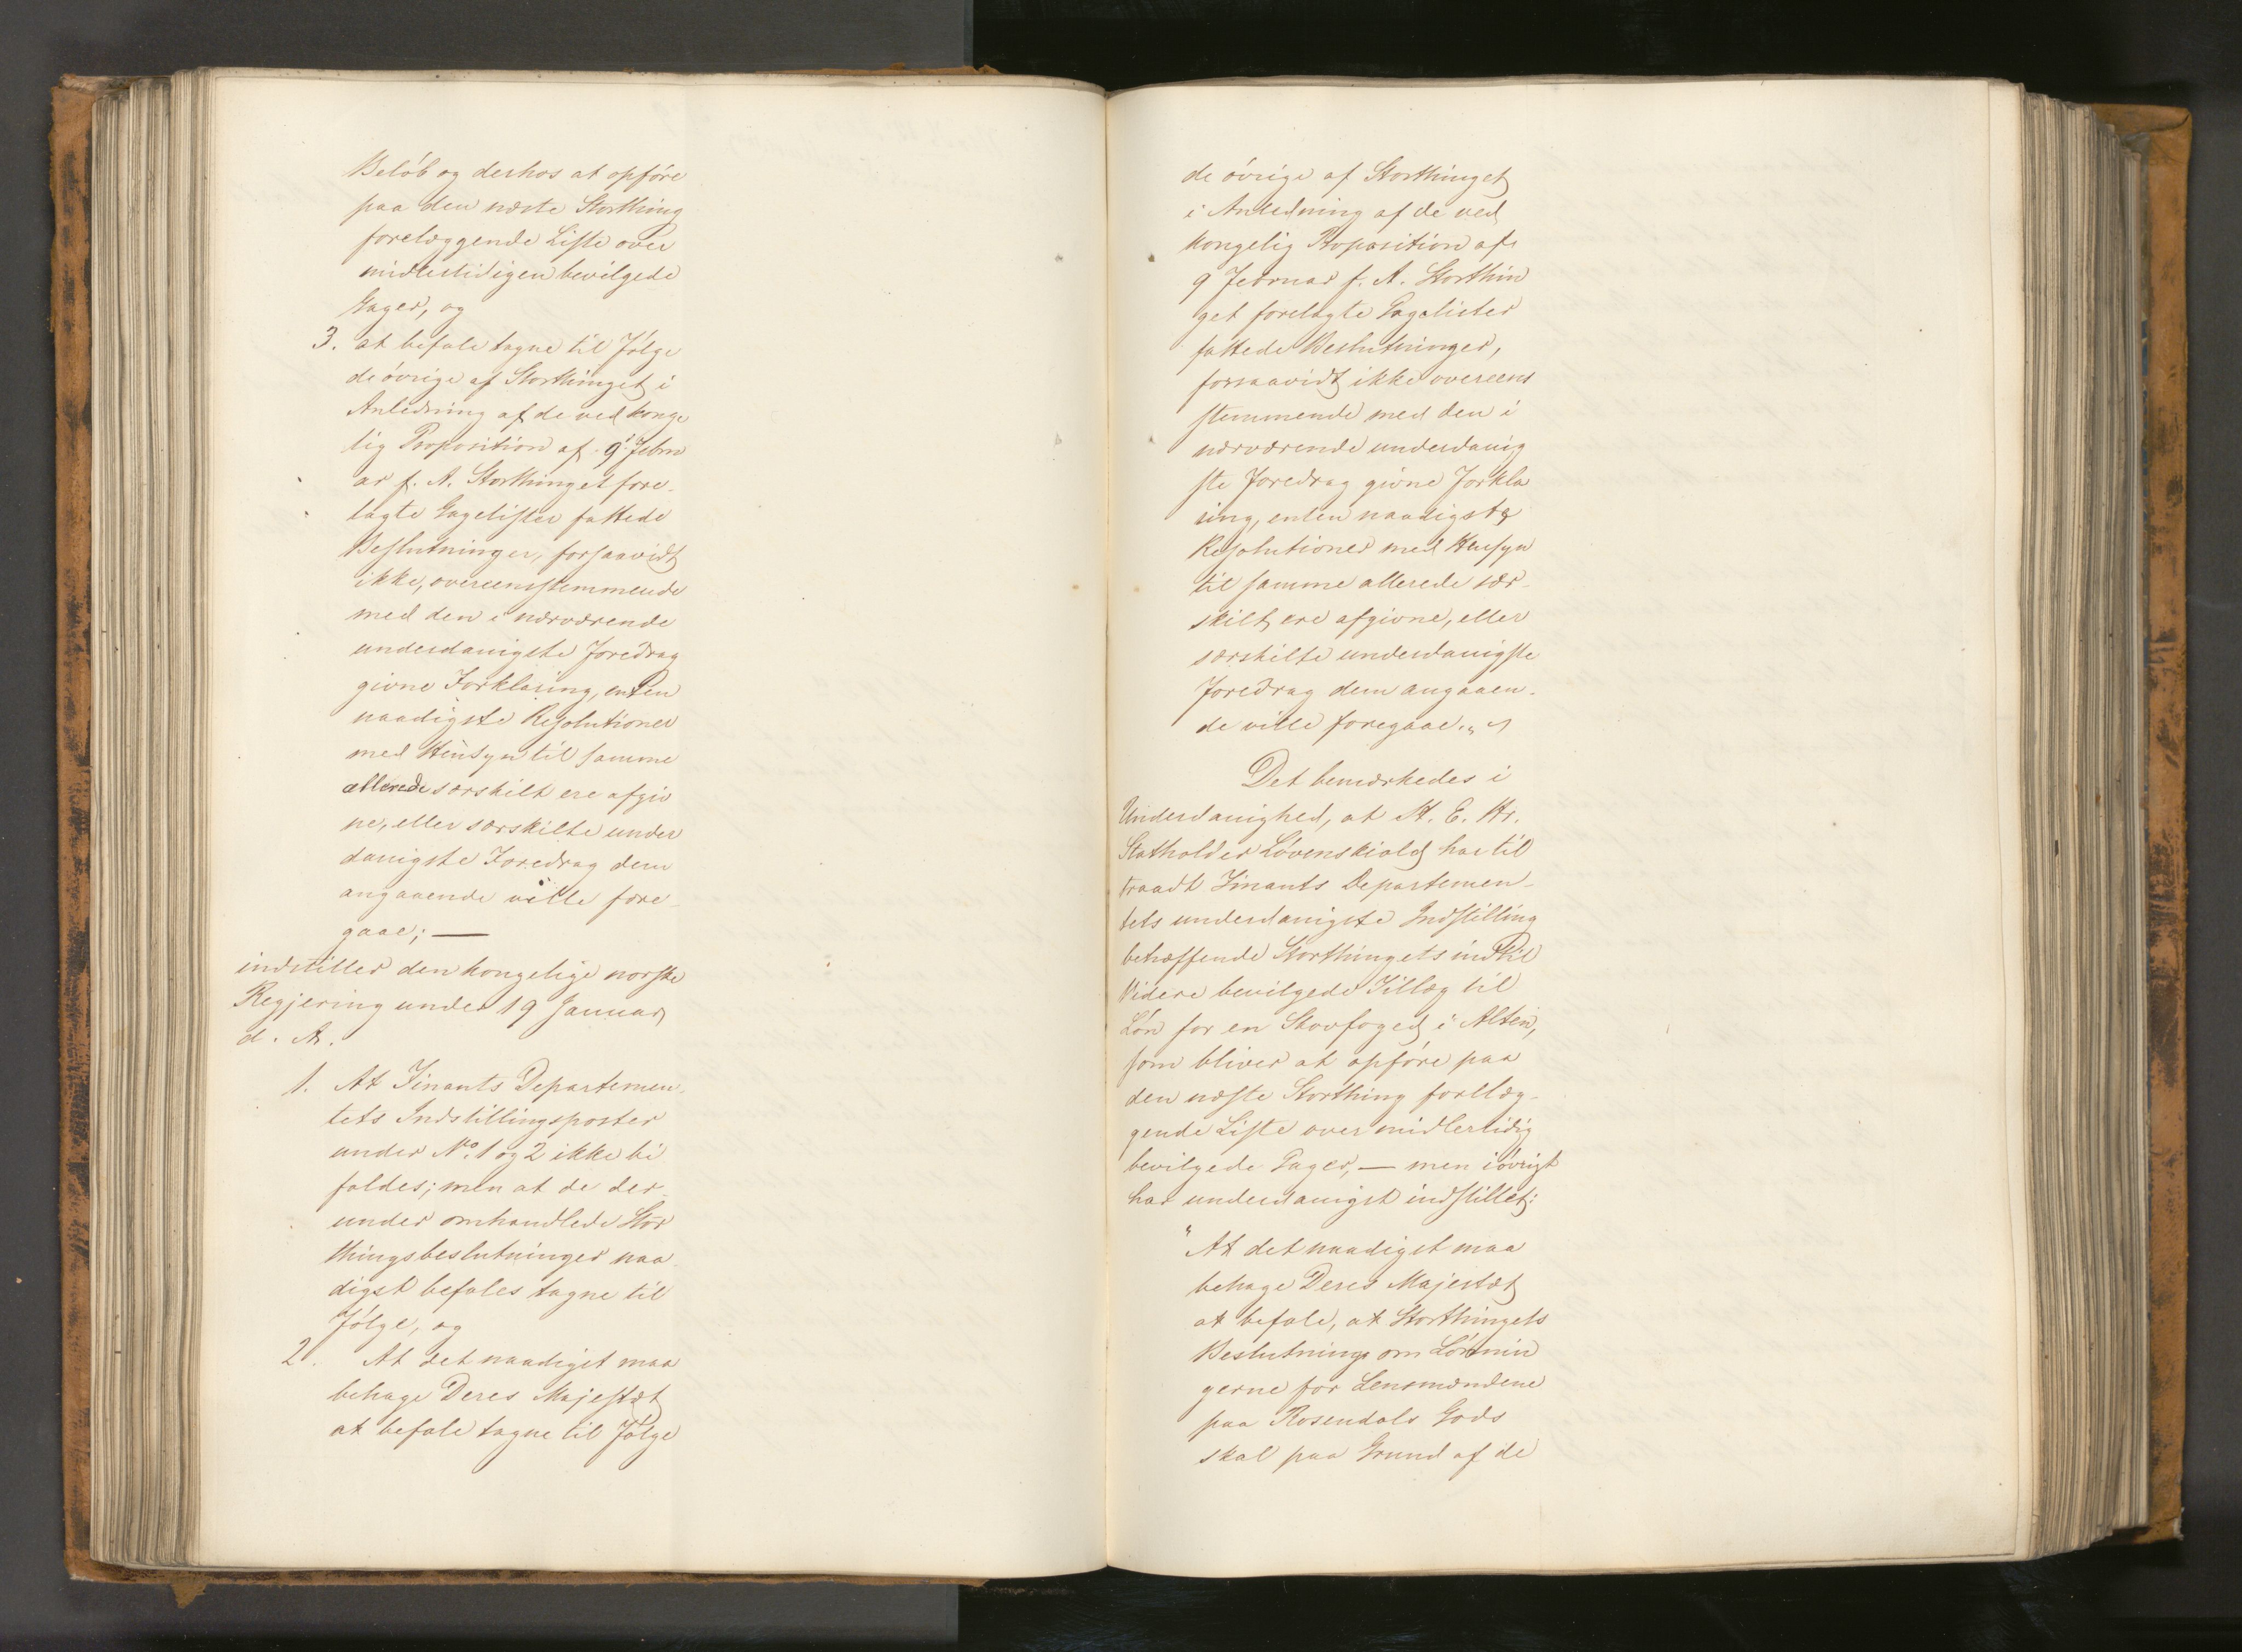 Beløb og derhos at opføre
paa den næste Storthing
forelæggende Liste over
midlertidigen bevilgede
Gager, og
3. at befale tagne til Følge
de øvrige af Storthinget i
Anledning af de ved konge
lig Proposition af 9 Febru
ar f. A. Storthinget fore-
lagte Gagelister fattede
Beslutninger, forsaavidt
ikke, overeensstemmende
med den i nærværende
underdanigste Foredrag
givne Forklaring, enten
naadigste Resolutioner
med Hensyn til samme
allerede særskilt ere afgiv
ne, eller særskilte under
danigste Foredrag dem
angaaende ville fore-
gaae; —
indstiller den kongelige norske
Regjering under 19 Januar
d. A.
1. At Finants Departemen-
tets Indstillingsposter
under No. 1 og 2 ikke bi
faldes; men at de der-
under omhandlede Stor
thingsbeslutninger naa-
digst befales tagne til
Følge, og
2. At det naadigst maa
behage Deres Majestæt
at befale tagne til Følge
de øvrige af Storthinget
i Anledning af de ved
kongelig Proposition af
9 Februar f. A. Storthin
get forelagte Gagelister
fattede Beslutninger,
forsaavidt ikke overeens
stemmende med den i
nærværende underdanig
ste Foredrag givne Forkla
ring, enten naadigste
Resolutioner med Hensyn
til samme allerede sær-
skilt ere afgivne, eller
særskilte underdanigste
Foredrag dem angaaen-
de ville foregaae."
Det bemærkedes i
Underdanighed, at H. E. Hr.
Statholder Løvenskiold har til
traadt Finants Departemen-
tets underdanigste Indstilling
betræffende Storthingets indtil
Videre bevilgede Tillæg til
Løn for en Skovfoged i Alten,
som bliver at opføre paa
den næste Storthing forelæg-
gende Liste over midlertidig
bevilgede Gager, — men iøvrigt
har underdanigst indstillet:
"At det naadigst maa
behage Deres Majestæt
at befale, at Storthingets
Beslutning om Lønnin
gerne for Lensmændene
paa Rosendals Gods
skal paa Grund af de